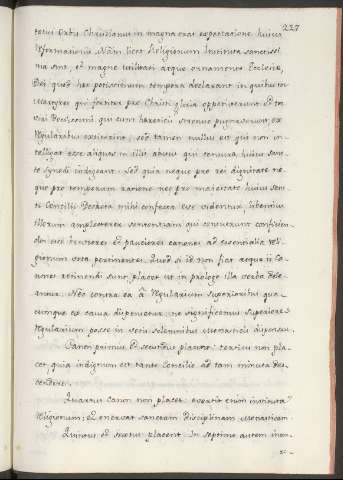 227
totus Orbis Christianus in magna erat expectatione huius
Reformationis. Nam licet Religionum Instituta sanctissi-
ma sint, et magnae utilitati atque ornamento Ecclesiae,
Dei quod haec potissimum tempora declarant in quibus tot
Martyres qui fortiter pro Christi gloria oppetiverunt et to-
viri Doctissimi, qui cum haereticis strenue pugnaverunt, ex
Regularibus extiterint, sed tamen nullus est qui non in-
telligat esse aliquos in illis abusus qui censura huius sanc-
te Synodi indigeant. Sed quia neque pro rei dignitate ne-
que pro temporum ratione nec pro maiestate huius San-
ti Concilii Decreta mihi confecta esse videntur, libentius
illorum amplecterer sententiam qui censuerunt conficien-
dos esse breviores et pauciores canones ad essentialia reli-
gionum vota pertinentes. Quod si id non fiat atque ii Ca-
nones retinendi sunt, placet ut in prologo illa verba dele-
antur. Nec contra ea à Regularium Superioribus qua-
cumque ex causa dispensetur, ne significemus Superiores
Regularium posse in votis solemnibus monasticis dispensare.
Canon primus et secundus placent: tertius non pla-
cet, quia indignum est tanto Concilio ad tam minuta des-
cendere.
Quartus Canon non placet: evertit enim instituta
Religionum; et enervat sanctam disciplinam monasticam.
Quintus et sextus placent. In septimo autem mon-